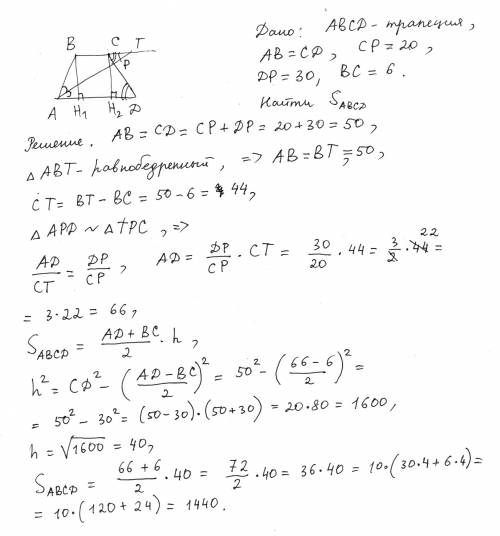 B C T
P
A H₁ H₂ D
Дано: ABCD - трапеция,
AB = CD, CP = 20,
DP = 30, BC = 6.
Найти S_ABCD
Решение. AB = CD = CP + DP = 20 + 30 = 50,
△ ABT - равнобедренный, => AB = BT = 50,
CT = BT - BC = 50 - 6 = 44,
△ APD ~ △ TPC, =>
AD/CT = DP/CP, AD = DP/CP · CT = 30/20 · 44 = 3/2 · 44 22 =
= 3 · 22 = 66,
S_ABCD = (AD + BC)/2 · h,
h² = CD² - ((AD - BC)/2)² = 50² - ((66 - 6)/2)² =
= 50² - 30² = (50 - 30) · (50 + 30) = 20 · 80 = 1600,
h = √1600 = 40,
S_ABCD = (66 + 6)/2 · 40 = 72/2 · 40 = 36 · 40 = 10 · (30 · 4 + 6 · 4) =
= 10 · (120 + 24) = 1440.